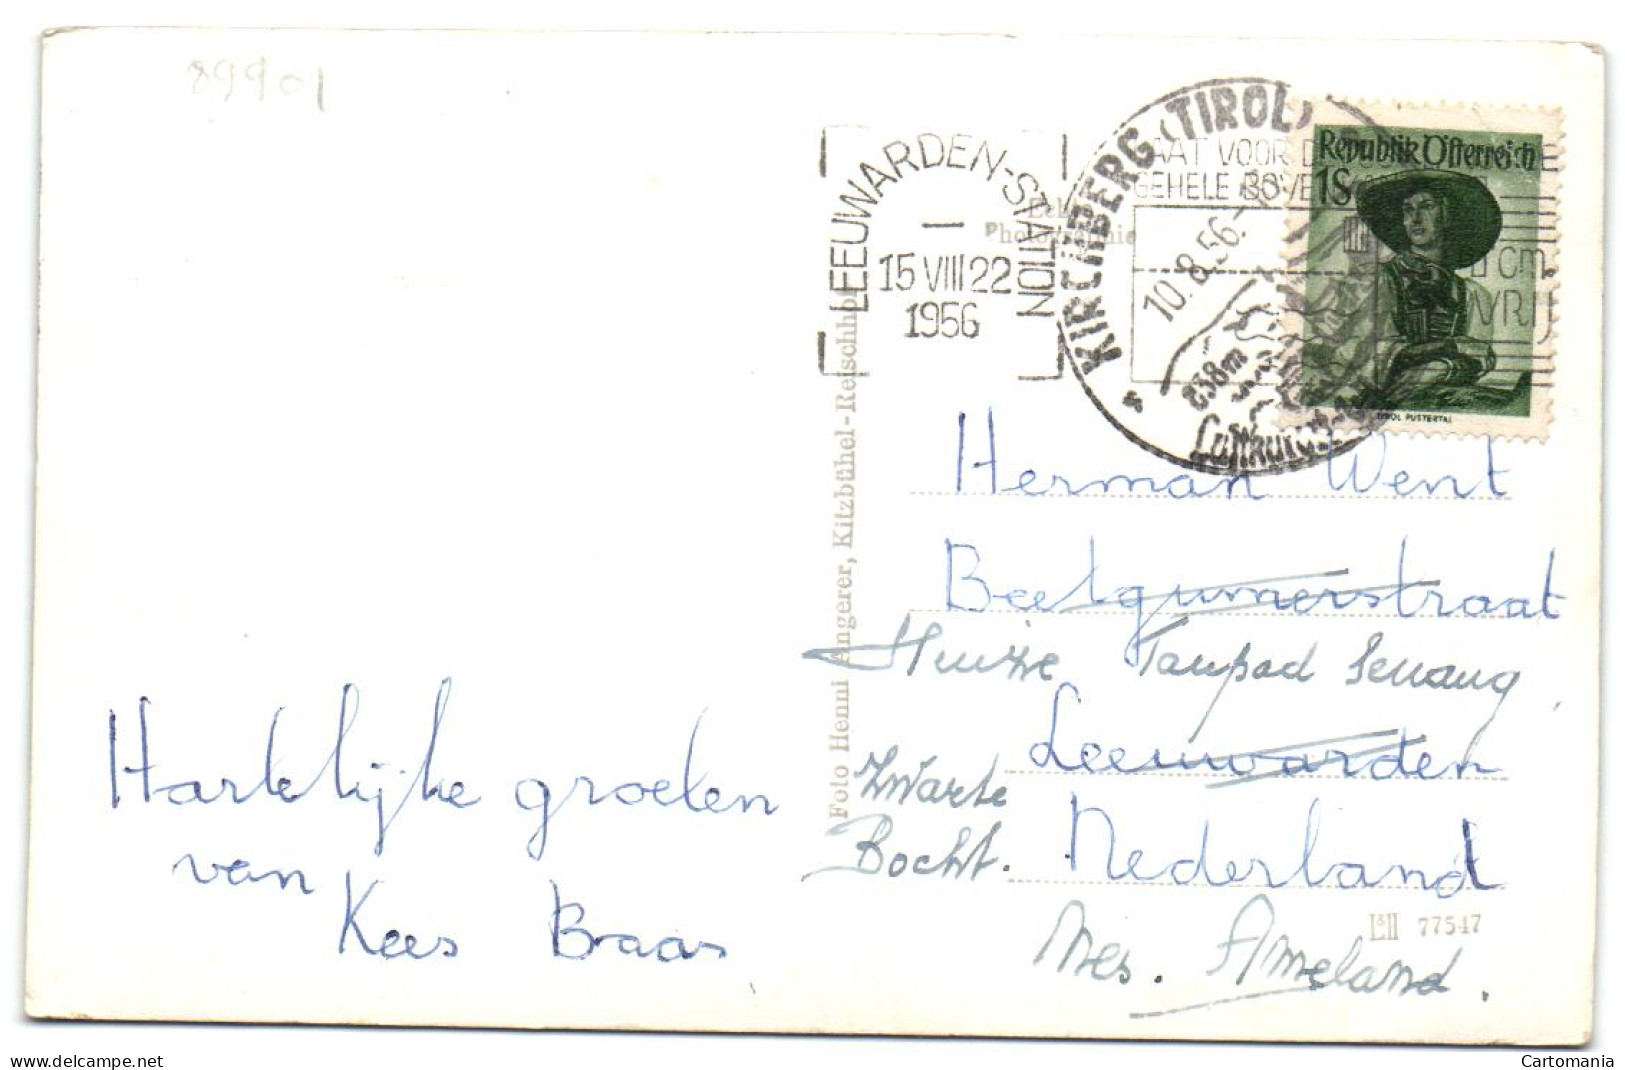 89901
LEEUWARDEN-STATION
15 VIII 22
1956
KIRCHBERG (TIROL)
10.8.56.
838m
AAT VOOR D
GEHELE BOVE
Republik Österreich
1S
TIROL PUSTERTAL
Photographie
Foto Henni Angerer, Kitzbühel-Reischhof
Herman Went
Beetgumerstraat
Huize Tanpad Senang
Leeuwarden
Zwarte
Bocht.
Nederland
Nes. Ameland.
77547
Hartelijke groeten
van
Kees Braas
Cartomania